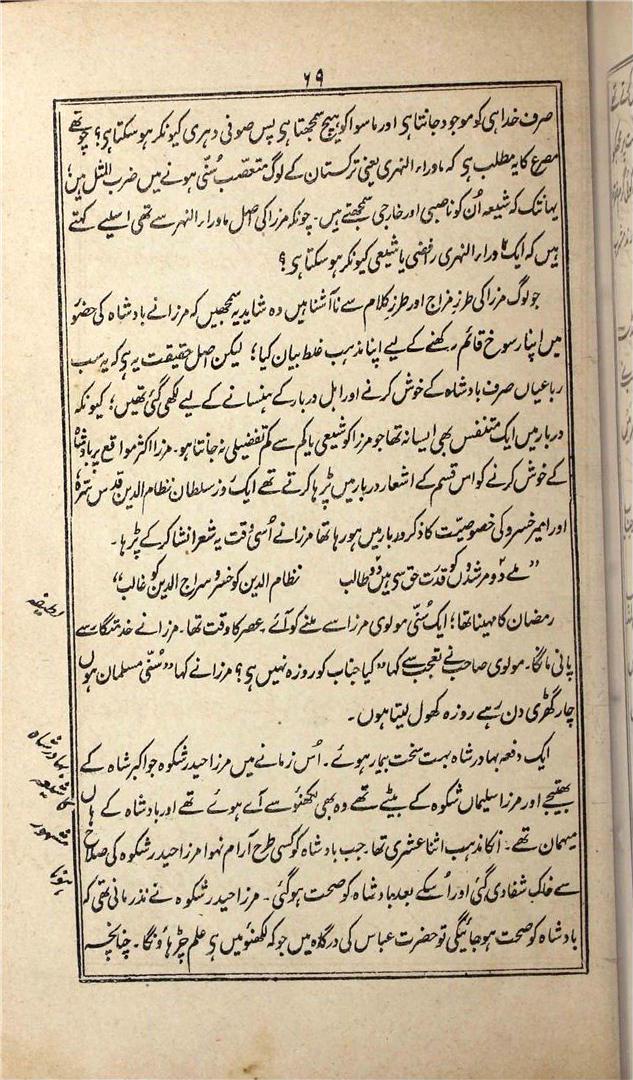 ۶۹
صرف خدا ہی کو موجود جانتا ہی اور ماسوا کو ہیچ سمجھتا ہی پس صوفی دہری کیونکر ہو سکتا ہی؟ چوتھے
مصرع کا یہ مطلب ہی کہ ماوراء النہری یعنی ترکستان کے لوگ متعصب سُنّی ہونے میں ضرب المثل ہیں؛
یہانتک کہ شیعہ اُن کو ناصبی اور خارجی سمجھتے ہیں۔ چونکہ مرزا کی اصل ماوراء النہر سے تھی اسلیے کہتے
ہیں کہ ایک ماوراء النہری رافضی یا شیعی کیونکر ہو سکتا ہی؟
جو لوگ مرزا کی طرزِ مزاج اور طرزِ کلام سے ناآشنا ہیں وہ شاید یہ سمجھیں کہ مرزا نے بادشاہ کی حضور
میں اپنا رسوخ قائم رکھنے کے لیے اپنا مذہب غلط بیان کیا؛ لیکن اصل حقیقت یہ ہی کہ یہ سب
رباعیاں صرف بادشاہ کے خوش کرنے اور اہل دربار کے ہنسانے کے لیے لکھی گئی تھیں؛ کیونکہ
دربار میں ایک متنفس بھی ایسا نہ تھا جو مرزا کو شیعی یا کم سے کم تفضیلی نہ جانتا ہو۔ مرزا اکثر مواقع پر بادشاہ
کے خوش کرنے کو اس قسم کے اشعار دربار میں پڑہا کرتے تھے ایک روز سلطان نظام الدین قدس سرہٗ
اور امیر خسرو کی خصوصیت کا ذکر دربار میں ہو رہا تھا مرزا نے اُسی وقت یہ شعر انشا کر کے پڑہا۔
”ملے دو مرشدوں کو قدرت حق سی ہیں دو طالب نظام الدین کو خسرو سراج الدین کو غالب“
لطیفہ
رمضان کا مہینا تھا؛ ایک سُنّی مولوی مرزا سے ملنے کو آئے عصر کا وقت تھا۔ مرزا نے خدمتگار سے
پانی مانگا۔ مولوی صاحب نے تعجب سے کہا ”کیا جناب کو روزہ نہیں ہی؟ مرزا نے کہا ”سُنّی مسلمان ہوں
چار گھڑی دن رہے روزہ کھول لیتا ہوں۔
بہادر شاہ
کا شیعہ
مشہور
ہونا
ایک دفعہ بہادر شاہ بہت سخت بیمار ہوئے۔ اُس زمانے میں مرزا حیدر شکوہ جو اکبر شاہ کے
بھتیجے اور مرزا سلیماں شکوہ کے بیٹے تھے وہ بھی لکھنؤ سے آے ہوئے تھے اور بادشاہ کے ہاں
مہمان تھے۔ انکا مذہب اثنا عشری تھا۔ جب بادشاہ کو کسی طرح آرام نہوا مرزا حیدر شکوہ کی صلاح
سے خاکِ شفا دی گئی اور اُسکے بعد بادشاہ کو صحت ہوگئی۔ مرزا حیدر شکوہ نے نذر مانی تھی کہ
بادشاہ کو صحت ہو جائیگی تو حضرت عباس کی درگاہ میں جو کہ لکھنؤ میں ہی علم چڑہاؤنگا۔ چنانچہ